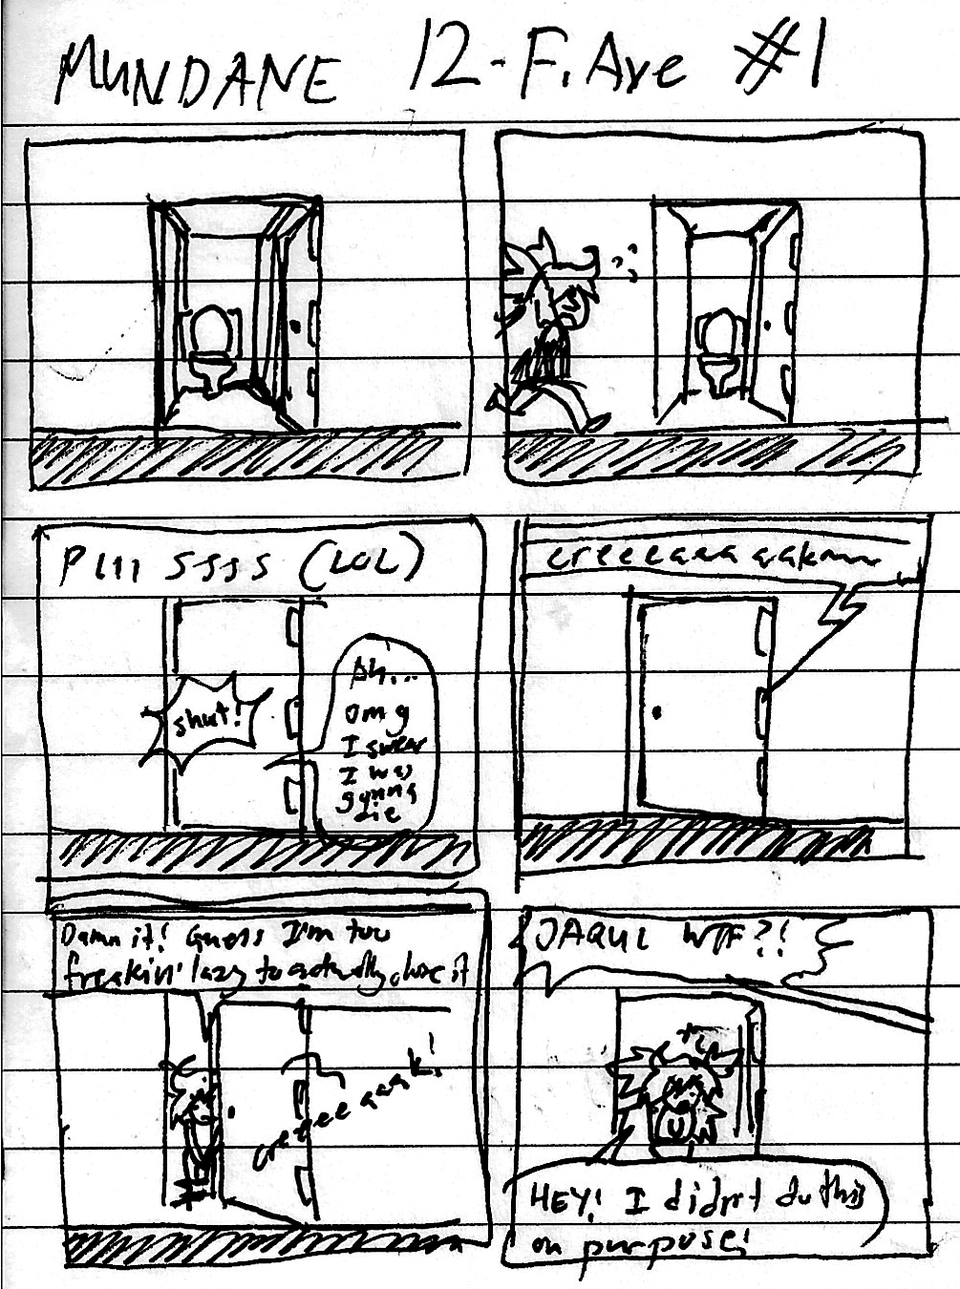 MUNDANE 12-F. Ave #1
PIII ssss (LOL)
shut!
Ah...
omg
I swear
I was
gonna
die
creeeaaaaak
Damn it! Guess I'm too
freakin' lazy to actually close it
creeee aaak!
JAQUL WTF?!
HEY! I didn't do this
on purpose!